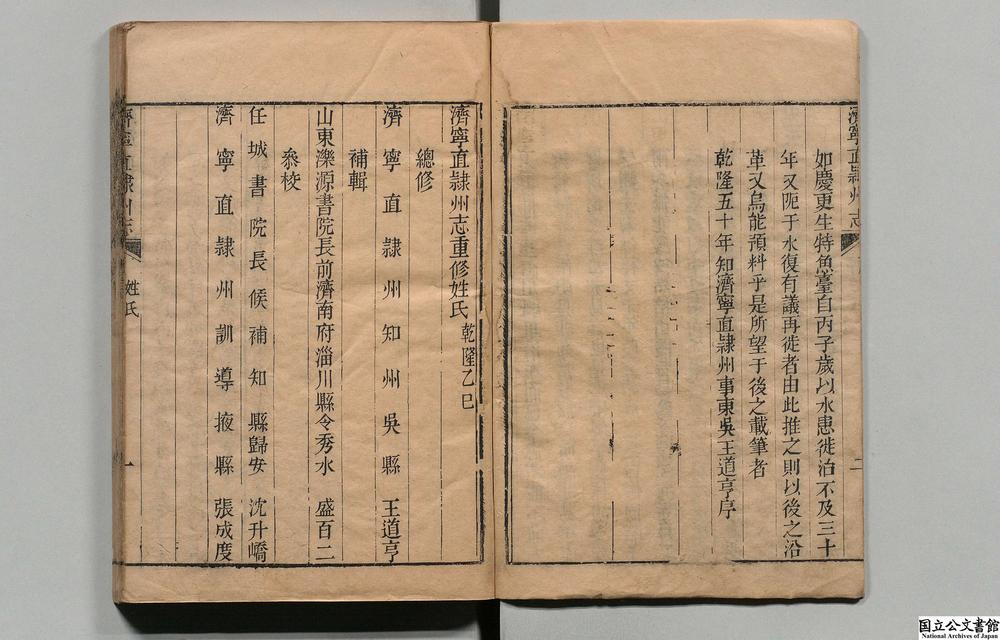 濟寧直隷州志
二
如慶更生特魚臺自丙子歲以水患徙治不及三十
年又阨于水復有議再徙者由此推之則以後之沿
革又烏能預料乎是所望于後之載筆者
乾隆五十年知濟寧直隷州事東吳王道亨序
濟寧直隷州志重修姓氏 乾隆乙巳
總修
濟寧直隷州知州吳縣 王道亨
補輯
山東濼源書院長前濟南府淄川縣令秀水 盛百二
叅校
任城書院長候補知縣歸安 沈升嶠
濟寧直隷州訓導掖縣 張成度
濟寧直隷州志
姓氏
一
国立公文書館
National Archives of Japan